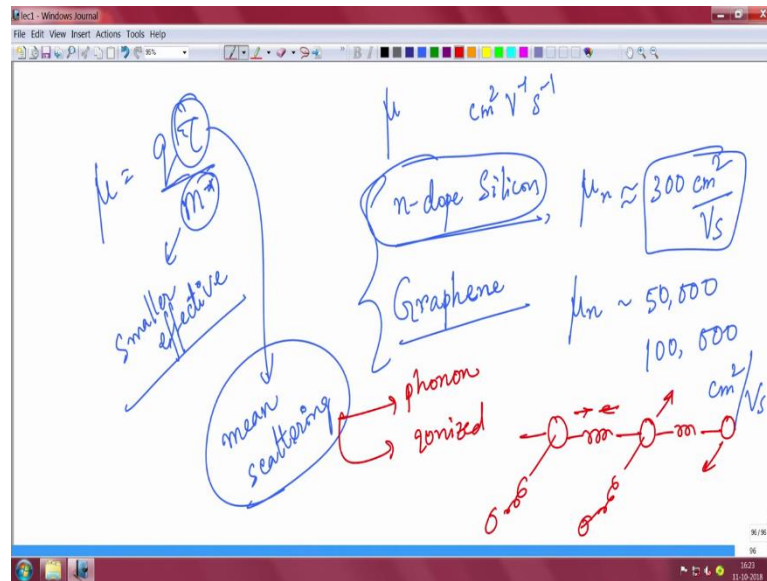 lec1 - Windows Journal
File Edit View Insert Actions Tools Help
95%
B I
μ = qτ / m*
smaller
effective
mean
scattering
μ cm² V⁻¹ s⁻¹
n-dope Silicon, μn ≈ 300 cm²/Vs
Graphene μn ~ 50,000
100,000
cm²/Vs
phonon
ionized
96/96
96
16:23
11-10-2018